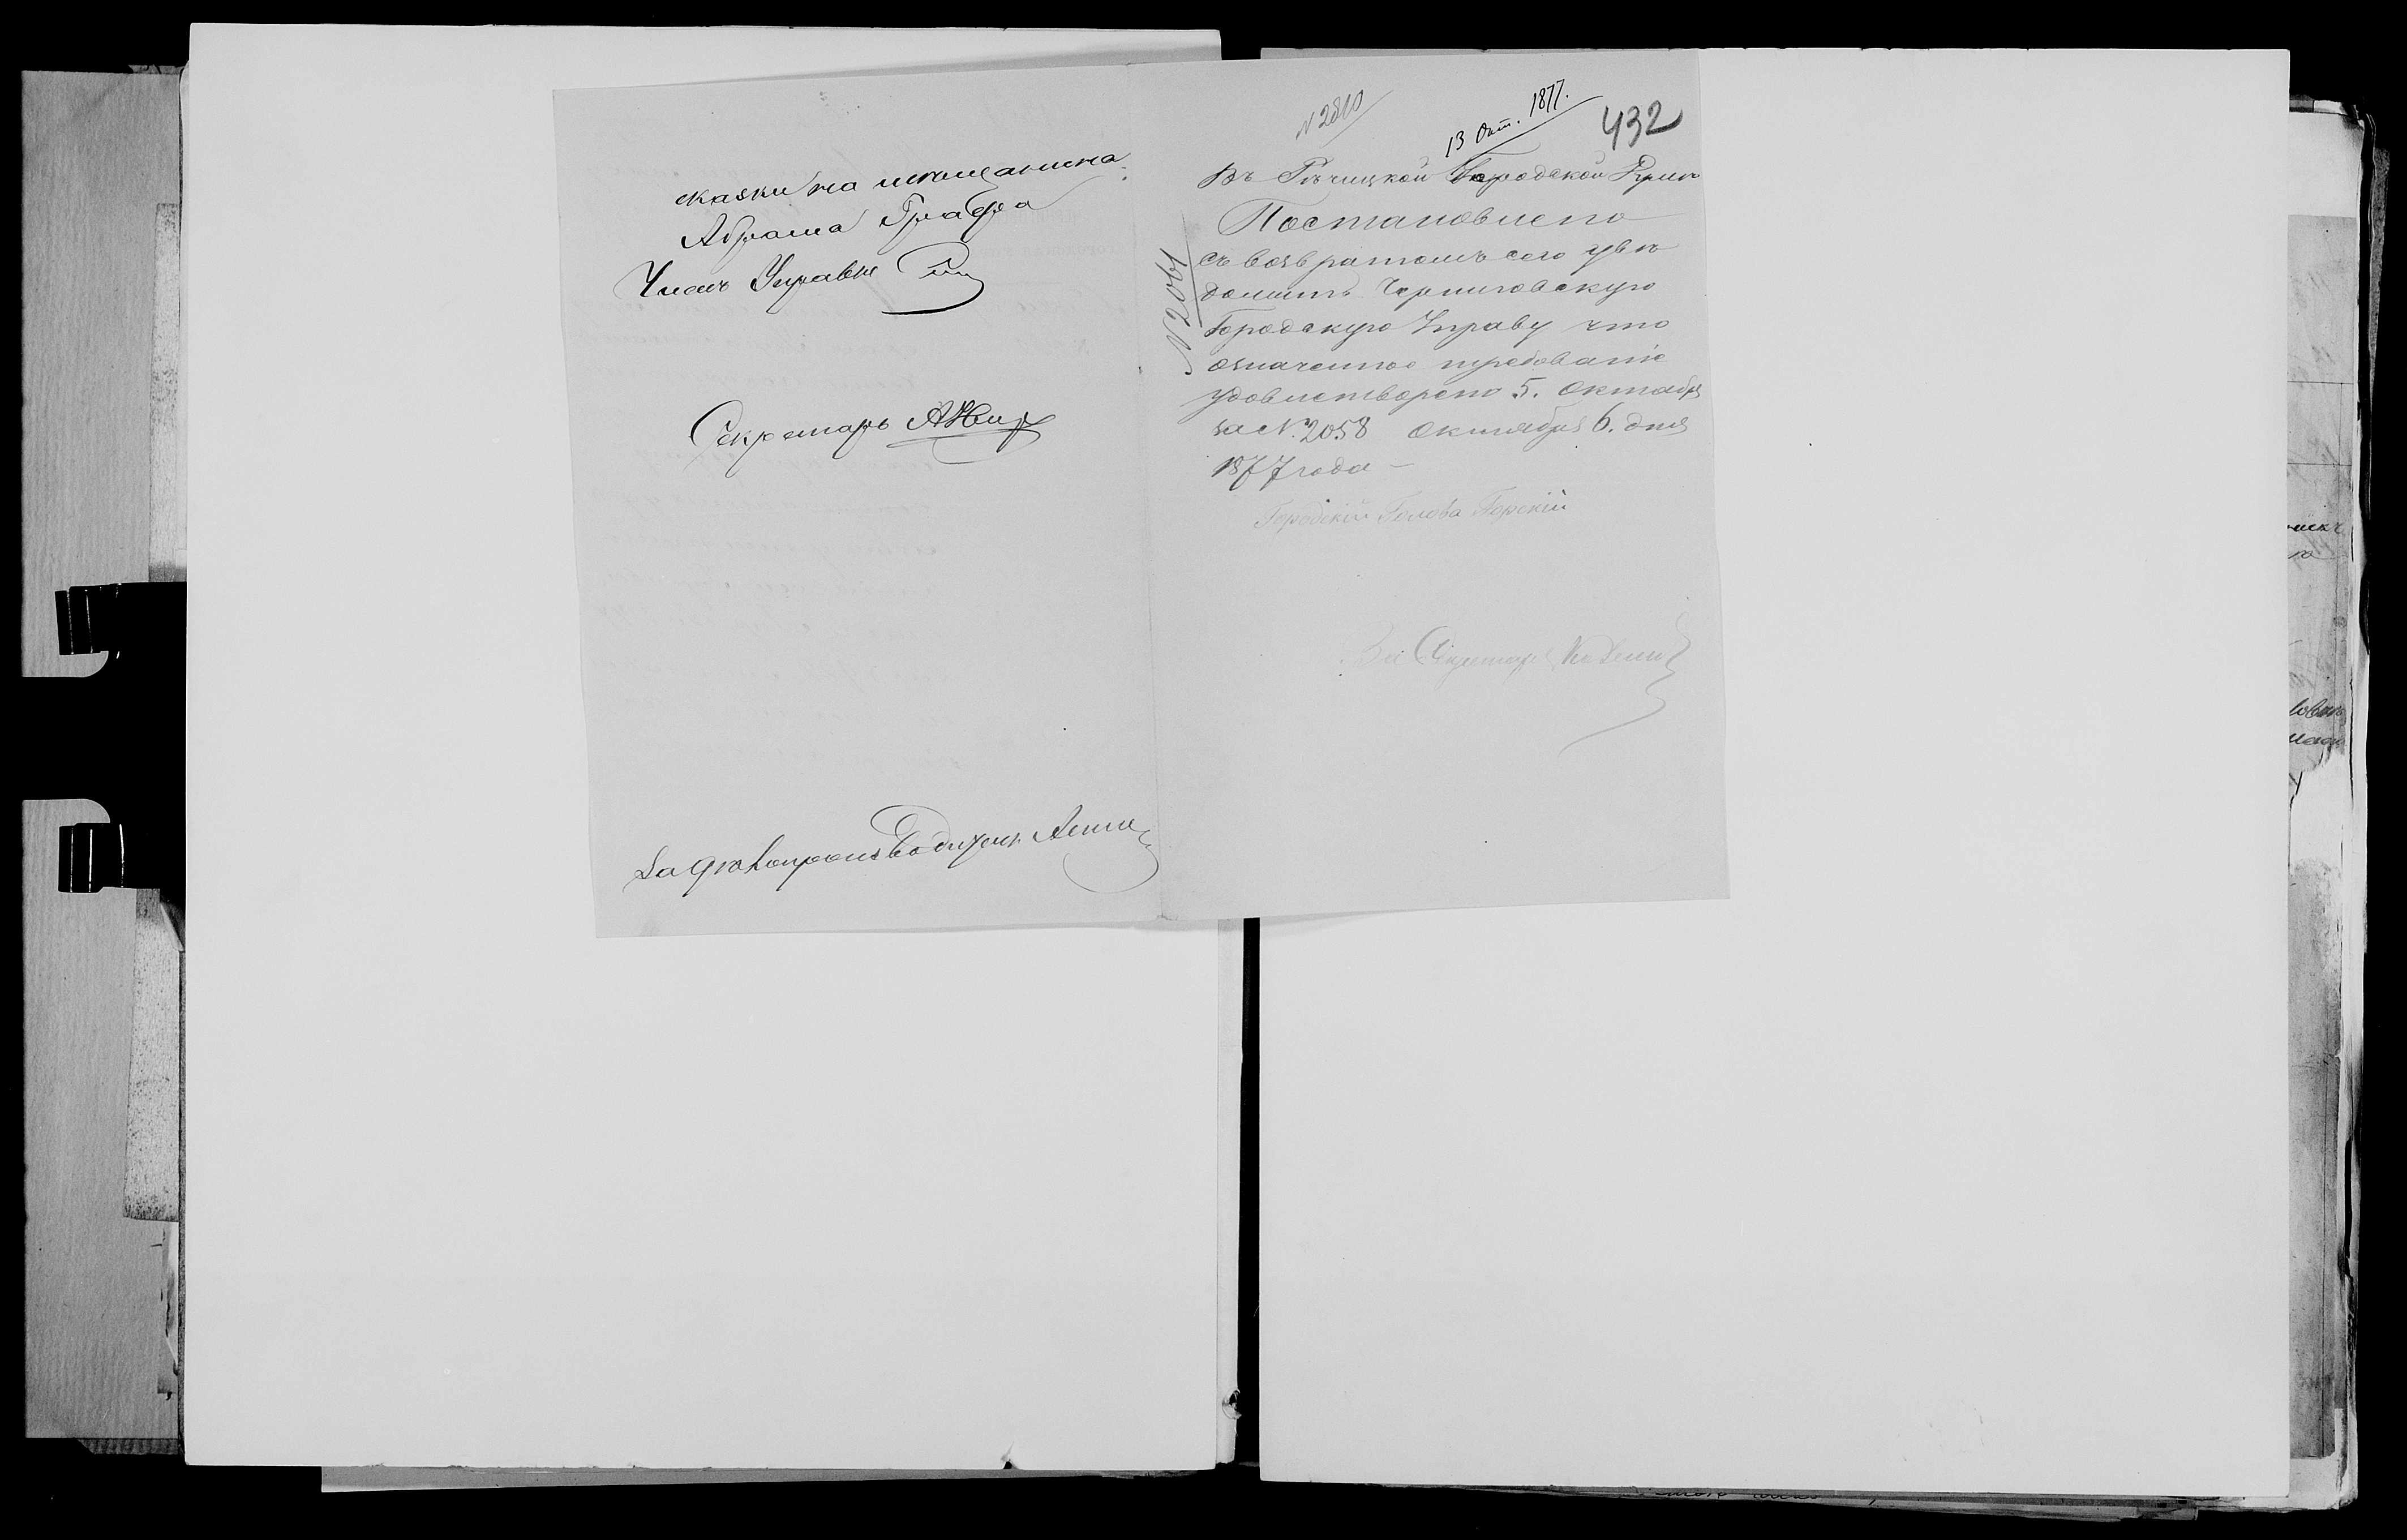 сказки на мѣщанина
Абрама Графа
Членъ Управы
Секретарь
За Дѣлопроизводителя
N 2810
13 Окт. 1877.
432
Въ Рѣчицкой Городской Думѣ
Постановлено
N 2061
съ возвратомъ сего увѣ
домить Черниговскую
Городскую Управу что
означенное требованіе
удовлетворено 5. Октября
за N. 2058 Октября 6. дня
1877 года —
Городской Голова Горскій
За Секретаря